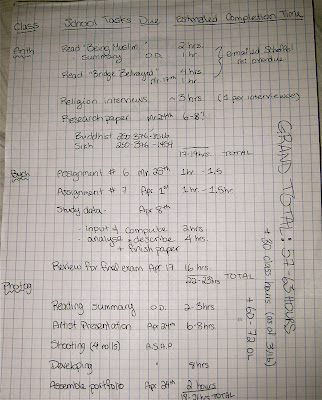 Class School Tasks Due Estimated Completion Time
Anth Read "Being Muslim" 2 hrs.
Summary O.D. 1 hr.
Read "Bridge Betrayed" 4 hrs
Mr. 17th 1 hr.
emailed
re: overdue
Religion interviews 3 hrs (1 per interviewee)
Research paper Mr. 24th 6-8?
Buddhist
Sikh
17-19 hrs TOTAL
Psych Assignment # 6 Mr. 25th 1hr. - 1.5
Assignment # 7 Apr 1st 1hr - 1.5hr
Study data - Apr 8th
- input & compute 2hrs.
- analyse & describe 4 hrs.
+ finish paper
Review for final exam Apr 17 16 hrs
TOTAL
Photog
Reading summary O.D. 2-3hrs.
Artist Presentation Apr 24th 6-8hrs
Shooting (4 rolls) A.S.A.P.
Developing " 8hrs
Assemble portfolio Apr 24th 2 hours
18-21hrs TOTAL
GRAND TOTAL: 57-63 HOURS
+ 80 class hours (as of 3/16)
+ 60-72 OL